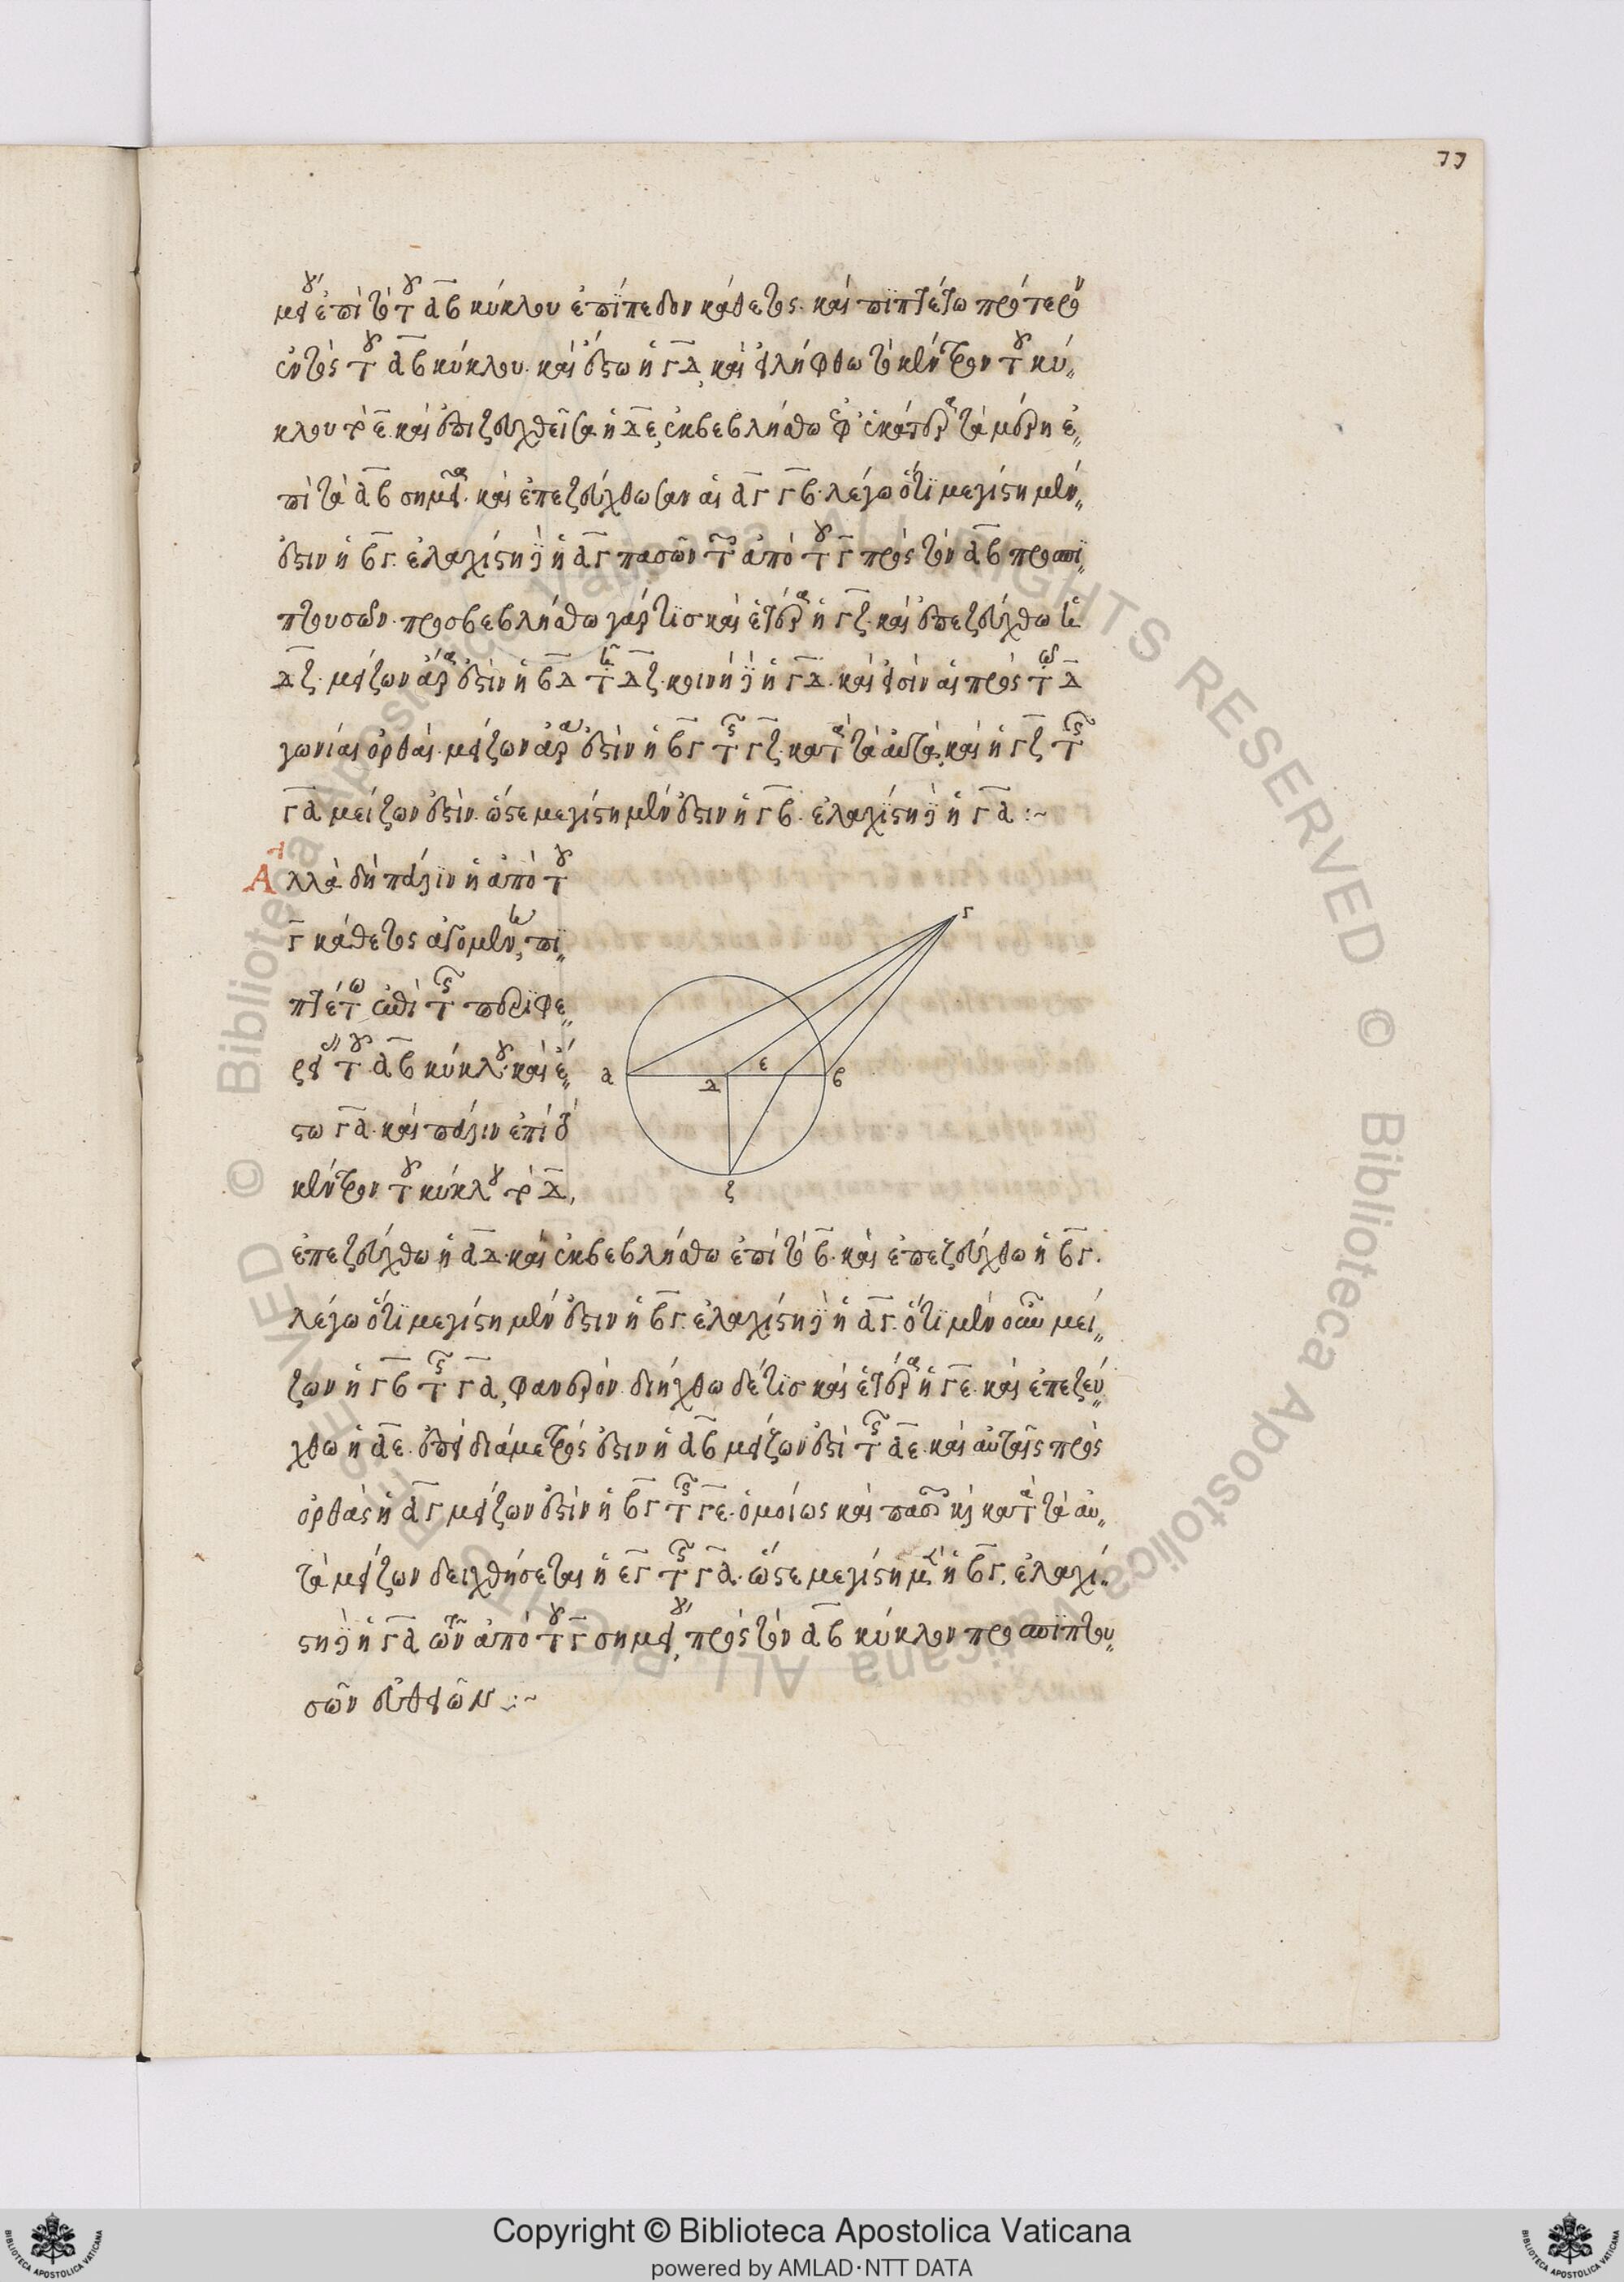 77
μείου ἐπὶ τὸ τοῦ αβ κύκλου ἐπίπεδον κάθετος. καὶ πιπτέτω πρότερον
ἐντὸς τοῦ αβ κύκλου. καὶ ἔστω ἡ γδ, καὶ εἰλήφθω τὸ κέντρον τοῦ κύ„
κλου τὸ ε. καὶ ἐπιζευχθεῖσα ἡ δε, ἐκβεβλήσθω ἐφ' ἑκάτερα τὰ μέρη ἐ„
πὶ τὰ αβ σημεῖα. καὶ ἐπεζεύχθωσαν αἱ αγ γβ. λέγω ὅτι μεγίστη μέν„
ἐστιν ἡ βγ. ἐλαχίστη δὲ ἡ αγ πασῶν τῶν ἀπὸ τοῦ γ πρὸς τὸν αβ προσπι„
πτουσῶν. προσβεβλήσθω γάρ τις καὶ ἑτέρα ἡ γζ. καὶ ἐπεζεύχθω ἡ
δζ. μείζων ἄρα ἐστὶν ἡ βδ τῆς δζ. κοινὴ δὲ ἡ γδ. καὶ εἰσὶν αἱ πρὸς τῷ δ
γωνίαι ὀρθαί. μείζων ἄρα ἐστὶν ἡ βγ τῆς γζ. κατὰ τὰ αὐτὰ, καὶ ἡ γζ τῆς
γα μείζων ἐστίν. ὥστε μεγίστη μέν ἐστιν ἡ γβ. ἐλαχίστη δὲ ἡ γα :~
Ἀλλὰ δὴ πάλιν ἡ ἀπὸ τοῦ
γ κάθετος ἀγομένη, πι„
πτέτω ἐπὶ τῆς περιφε„
ρείας τοῦ αβ κύκλου. καὶ ἔ„
στω γα. καὶ πάλιν ἐπὶ τὸ
κέντρον τοῦ κύκλου τὸ δ,
ἐπεζεύχθω ἡ αδ. καὶ ἐκβεβλήσθω ἐπὶ τὸ β. καὶ ἐπεζεύχθω ἡ βγ.
λέγω ὅτι μεγίστη μέν ἐστιν ἡ βγ. ἐλαχίστη δὲ ἡ αγ. ὅτι μὲν οὖν μεί„
ζων ἡ γβ τῆς γα, φανερόν. διήχθω δέ τις καὶ ἑτέρα ἡ γε. καὶ ἐπεζεύ„
χθω ἡ αε. ἐπεὶ διάμετρός ἐστιν ἡ αβ μείζων ἐστὶ τῆς αε. καὶ αὐταῖς πρὸς
ὀρθὰς ἡ αγ μείζων ἐστὶν ἡ βγ τῆς γε. ὁμοίως καὶ πασῶν καὶ κατὰ τὰ αὐ„
τὰ μείζων δειχθήσεται ἡ εγ τῆς γα. ὥστε μεγίστη μὲν ἡ βγ. ἐλαχί„
στη δὲ ἡ γα τῶν ἀπὸ τοῦ γ σημείου, πρὸς τὸν αβ κύκλον προσπιπτου„
σῶν εὐθειῶν :~
γ
α δ ε β
ζ
Copyright © Biblioteca Apostolica Vaticana
powered by AMLAD·NTT DATA